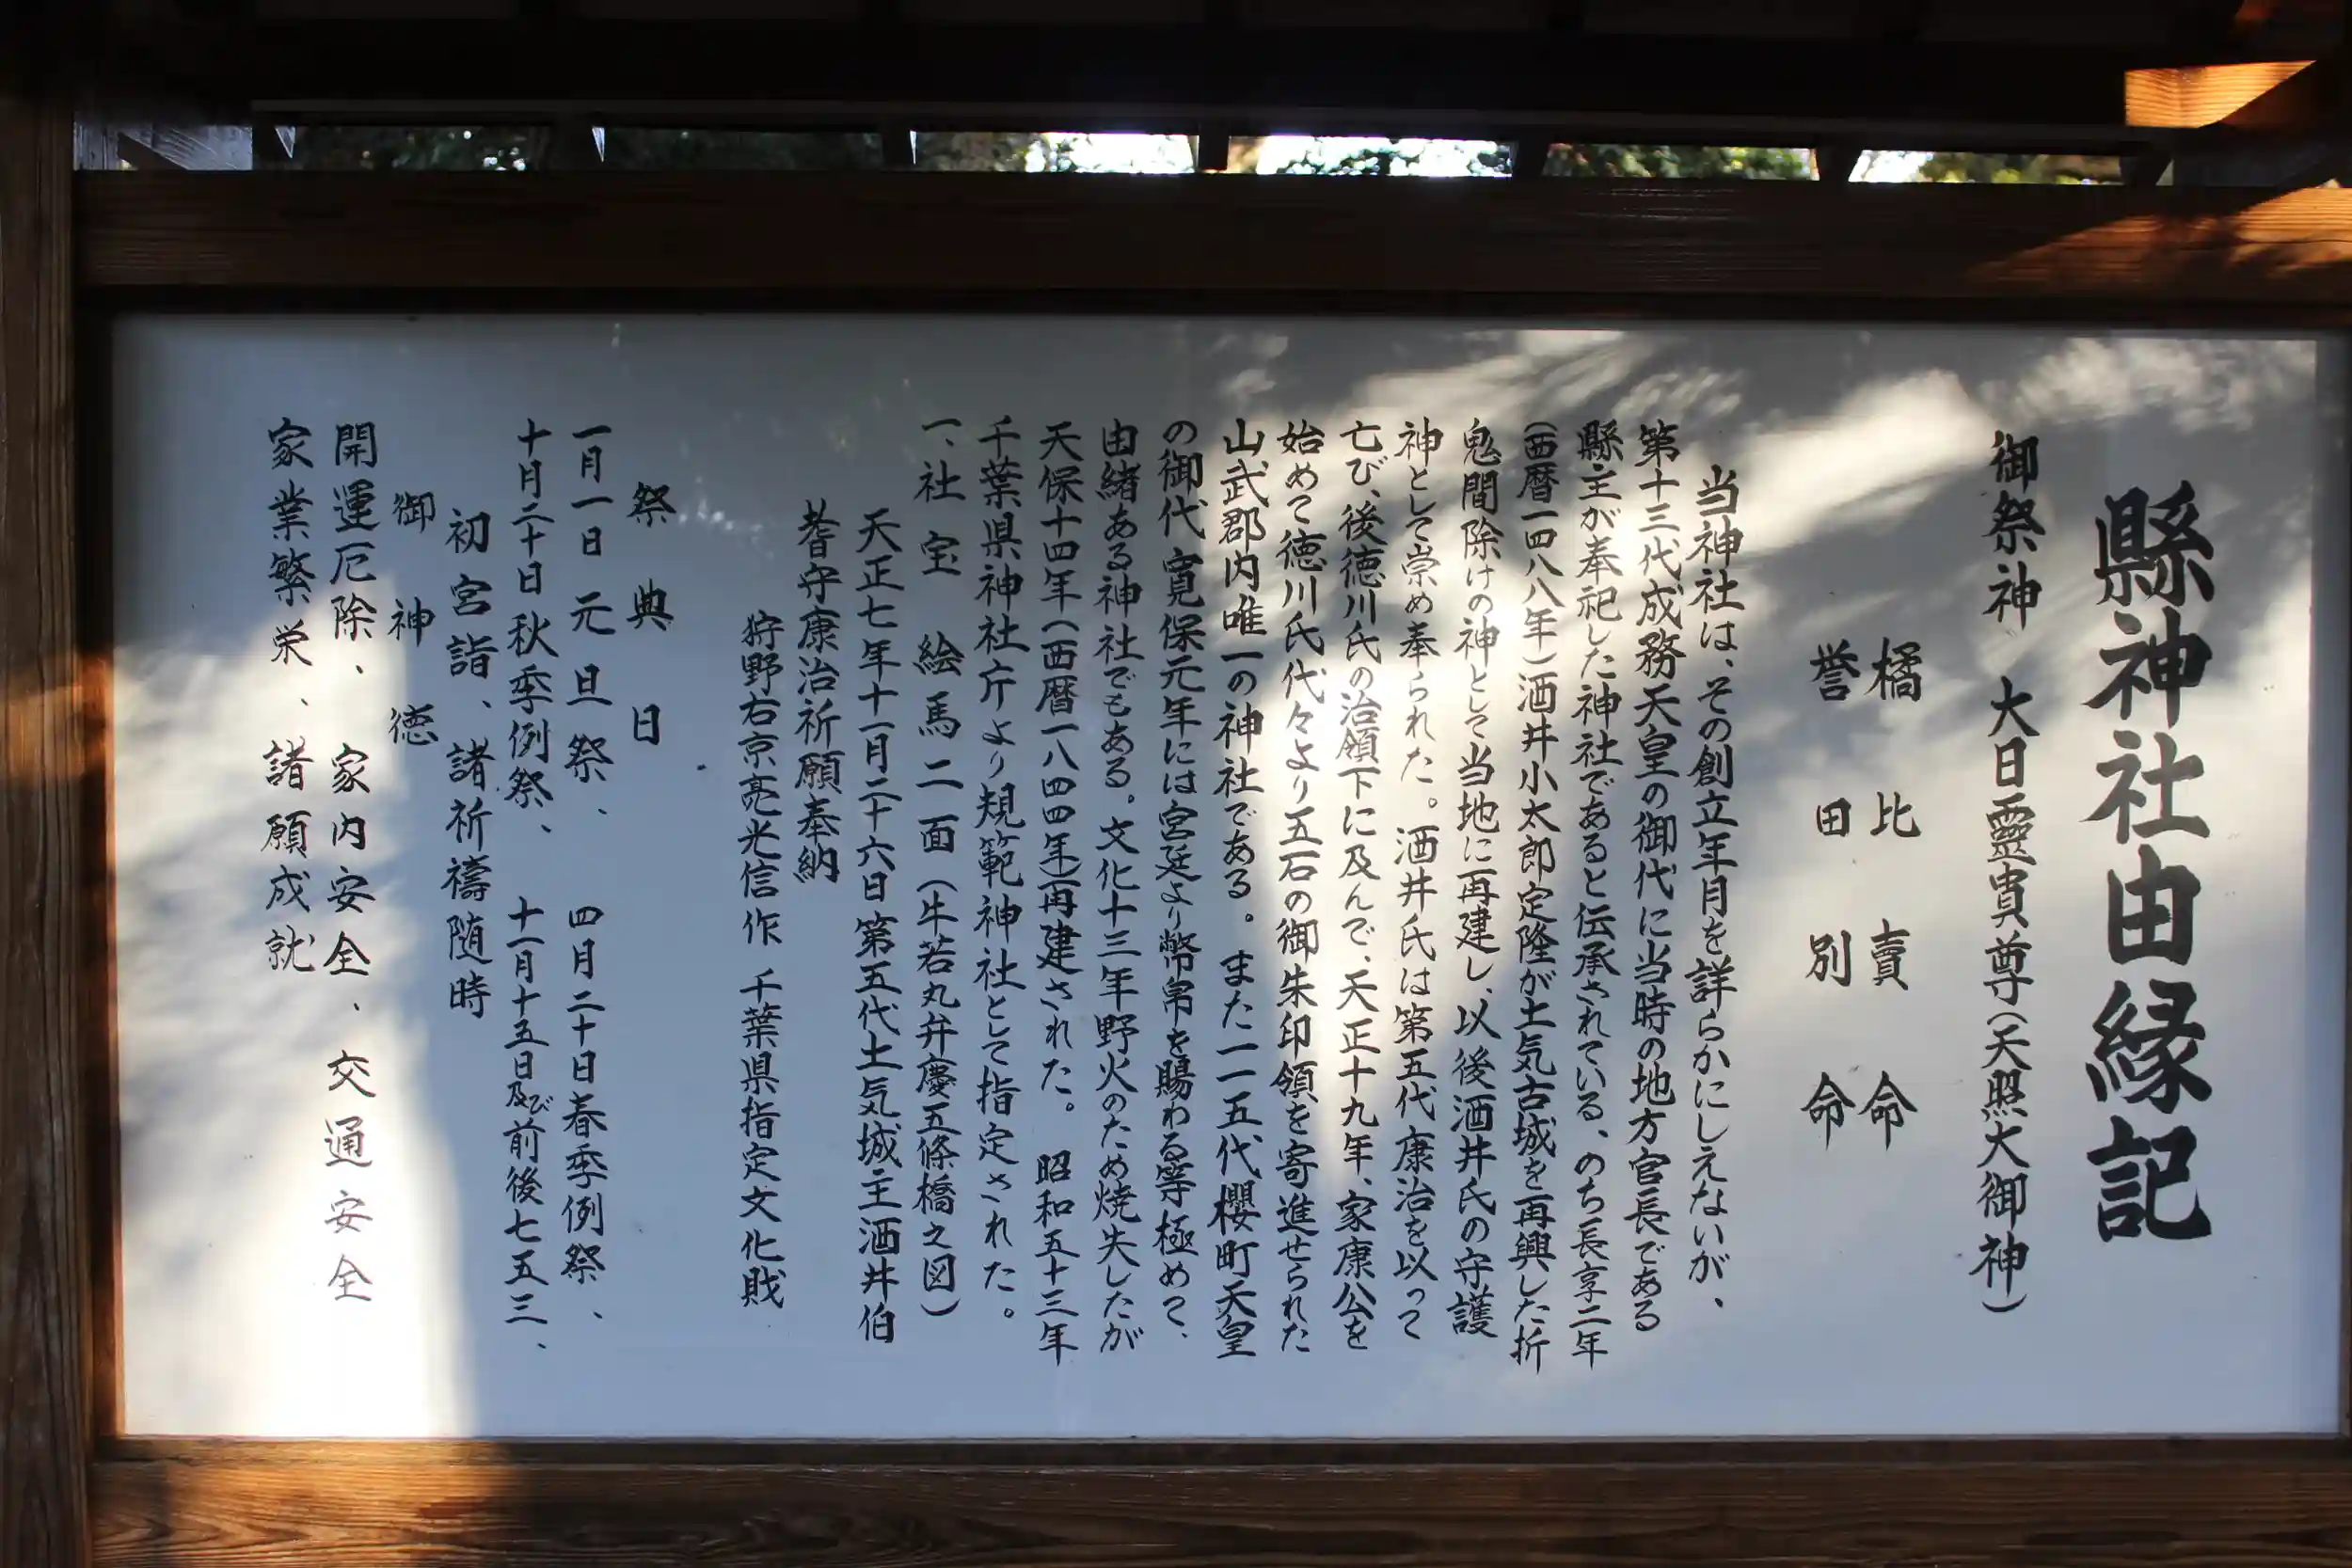 縣神社由縁記
御祭神 大日靈貴尊(天照大御神)
橘比賣命
誉田別命
当神社は、その創立年月を詳らかにしえないが、
第十三代成務天皇の御代に当時の地方官長である
縣主が奉祀した神社であると伝承されている、のち長享二年
(西暦一四八八年)酒井小太郎定隆が土気古城を再興した折
鬼間除けの神として当地に再建し、以後酒井氏の守護
神として崇め奉られた。酒井氏は第五代康治を以って
亡び、後徳川氏の治領下に及んで、天正十九年、家康公を
始めて徳川氏代々より五石の御朱印領を寄進せられた
山武郡内唯一の神社である。また一一五代櫻町天皇
の御代寛保元年には宮廷より幣帛を賜わる等極めて、
由緒ある神社でもある。文化十三年野火のため焼失したが
天保十四年(西暦一八四四年)再建された。昭和五十三年
千葉県神社庁より規範神社として指定された。
一、社宝 絵馬二面(牛若丸弁慶五條橋之図)
天正七年十一月二十六日第五代土気城主酒井伯
耆守康治祈願奉納
狩野右京亮光信作 千葉県指定文化財
祭典日
一月一日元旦祭、 四月二十日春季例祭、
十月二十日秋季例祭、 十一月十五日及び前後七五三、
初宮詣、諸祈禱随時
御神徳
開運厄除、家内安全、交通安全
家業繁栄、諸願成就